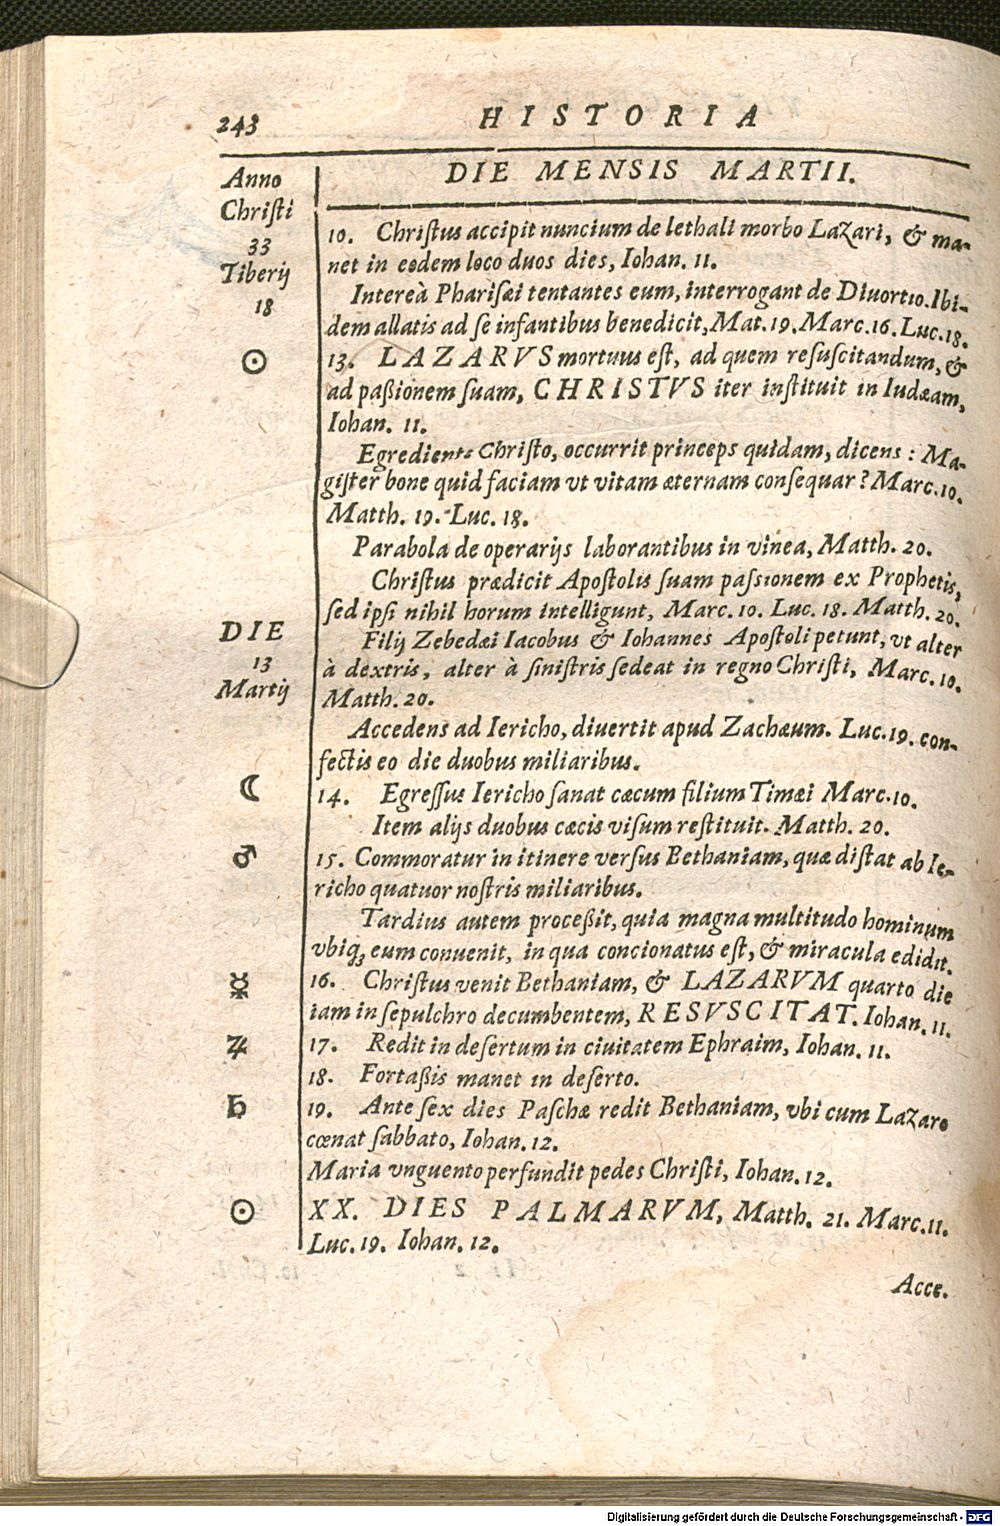 243 HISTORIA
DIE MENSIS MARTII.
Anno
Chriſti
33
Tiberij
18
10. Chriſtus accipit nuncium de lethali morbo Lazari, & ma-
net in eodem loco duos dies, Iohan. 11.
Intereà Phariſæi tentantes eum, interrogant de Diuortio. Ibi-
dem allatis ad ſe infantibus benedicit, Mat. 19. Marc. 16. Luc. 18.
☉ 13. LAZARVS mortuus eſt, ad quem reſuſcitandum, &
ad paßionem ſuam, CHRISTVS iter inſtituit in Iudæam,
Iohan. 11.
Egrediente Chriſto, occurrit princeps quidam, dicens : Ma-
giſter bone quid faciam vt vitam æternam conſequar? Marc. 10.
Matth. 19. Luc. 18.
Parabola de operarijs laborantibus in vinea, Matth. 20.
Chriſtus prædicit Apoſtolis ſuam paſsionem ex Prophetis,
ſed ipſi nihil horum intelligunt, Marc. 10. Luc. 18. Matth. 20.
DIE
13
Martij
Filij Zebedæi Iacobus & Iohannes Apoſtoli petunt, vt alter
à dextris, alter à ſiniſtris ſedeat in regno Chriſti, Marc. 10.
Matth. 20.
Accedens ad Iericho, diuertit apud Zachæum. Luc. 19. con-
fectis eo die duobus miliaribus.
☾ 14. Egreſſus Iericho ſanat cæcum filium Timæi Marc. 10.
Item alijs duobus cæcis viſum reſtituit. Matth. 20.
♂ 15. Commoratur in itinere verſus Bethaniam, quæ diſtat ab Ie-
richo quatuor noſtris miliaribus.
Tardius autem proceßit, quia magna multitudo hominum
vbiq; eum conuenit, in qua concionatus eſt, & miracula edidit.
☿ 16. Chriſtus venit Bethaniam, & LAZARVM quarto die
iam in ſepulchro decumbentem, RESVSCITAT. Iohan. 11.
♃ 17. Redit in deſertum in ciuitatem Ephraim, Iohan. 11.
18. Fortaßis manet in deſerto.
♄ 19. Ante ſex dies Paſchæ redit Bethaniam, vbi cum Lazaro
cœnat ſabbato, Iohan. 12.
Maria vnguento perfundit pedes Chriſti, Iohan. 12.
☉ XX. DIES PALMARVM, Matth. 21. Marc. 11.
Luc. 19. Iohan. 12.
Acce.
Digitalisierung gefördert durch die Deutsche Forschungsgemeinschaft - DFG